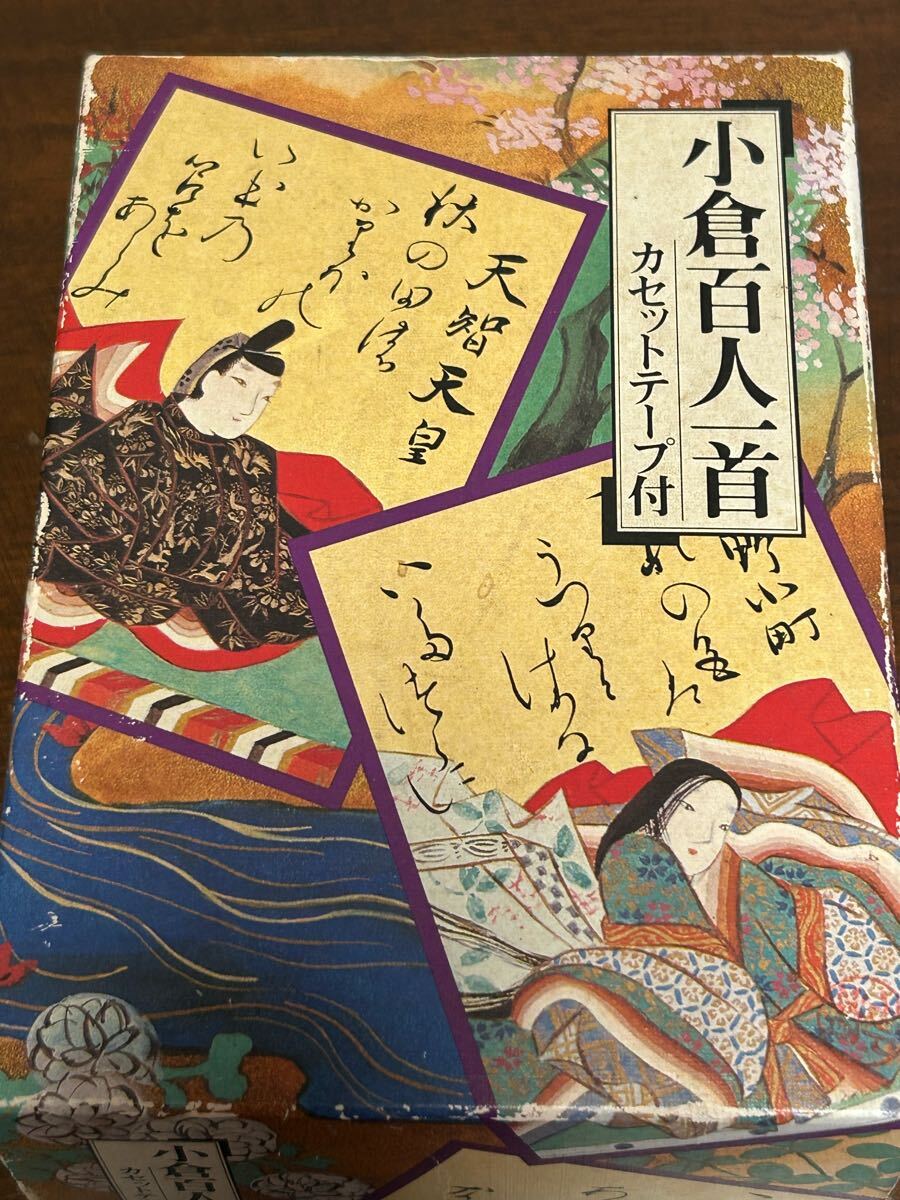 小倉百人一首
カセットテープ付
天智天皇
秋の田の
かりほの
いほの
苫を
あらみ
小町
花の色は
うつり
けりな
いたつらに
小倉百人
カセットテ